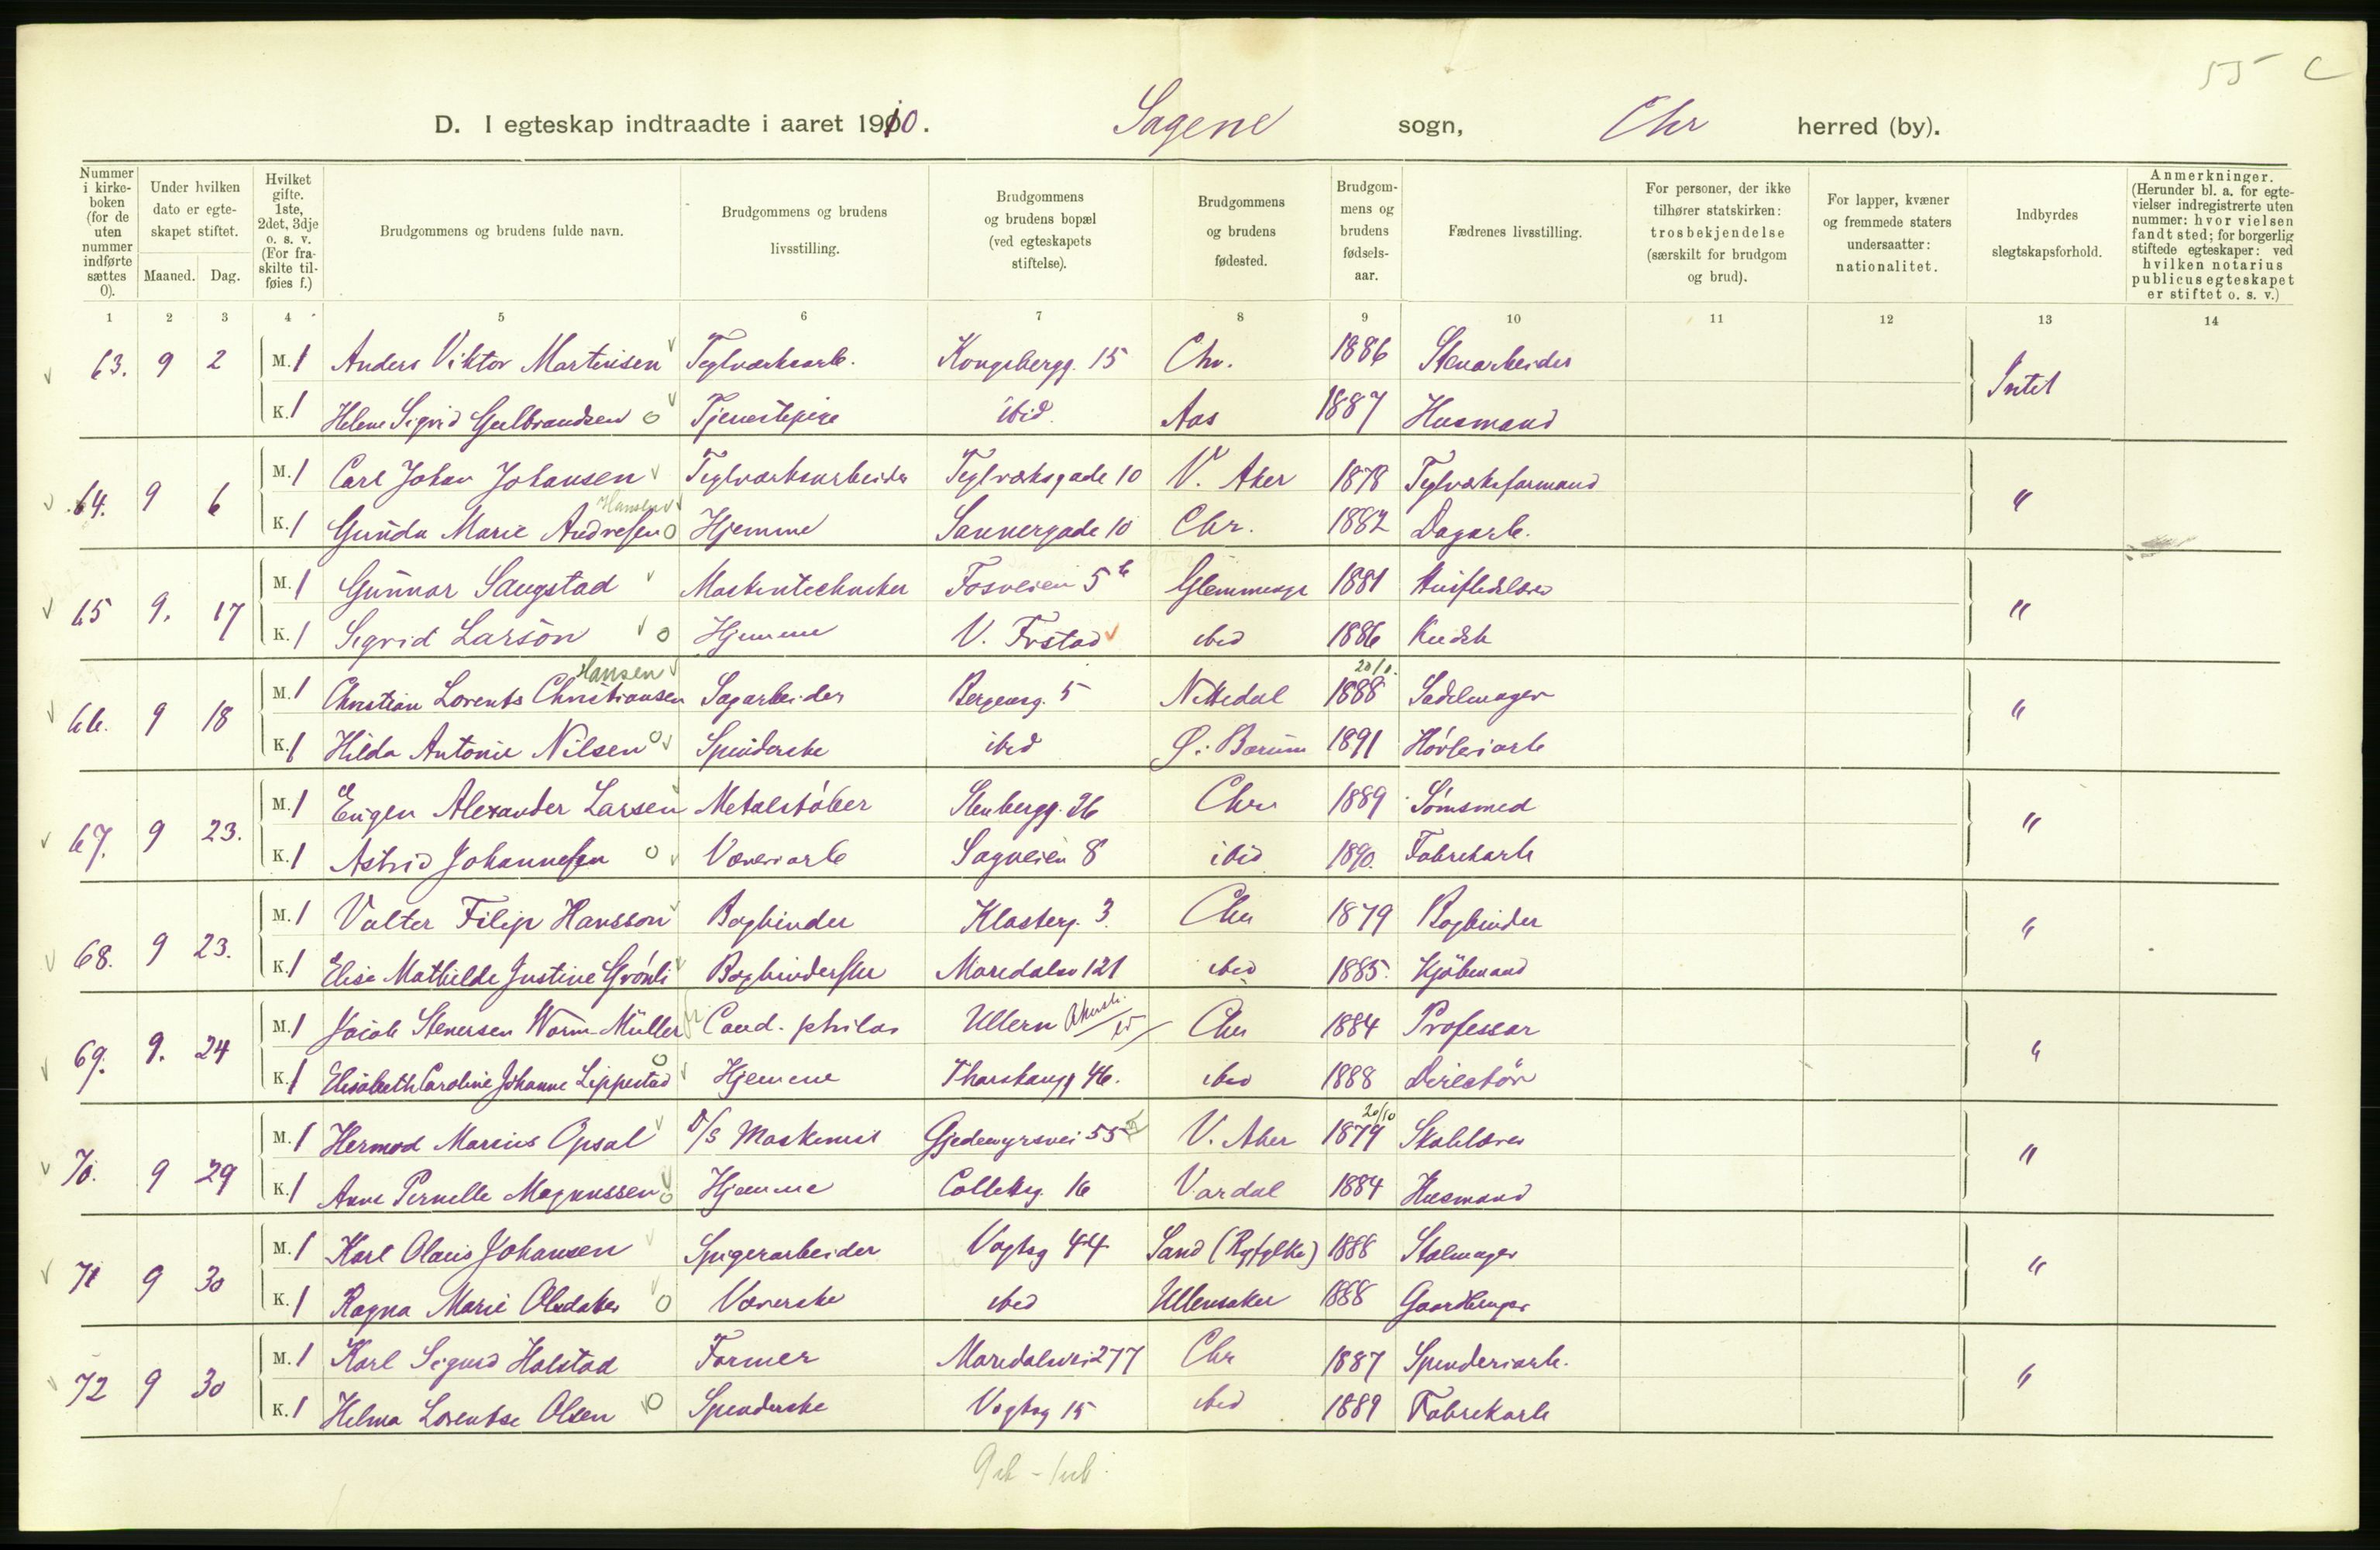 55 C
D. I egteskap indtraadte i aaret 1910. Sagene sogn, Chr herred (by).
Nummer i kirkeboken (for de uten nummer indførte sættes 0). Under hvilken dato er egteskapet stiftet. Maaned. Dag. Hvilket gifte. 1ste, 2det, 3dje o. s. v. (For fraskilte tilføies f.) Brudgommens og brudens fulde navn. Brudgommens og brudens livsstilling. Brudgommens og brudens bopæl (ved egteskapets stiftelse). Brudgommens og brudens fødested. Brudgommens og brudens fødselsaar. Fædrenes livsstilling. For personer, der ikke tilhører statskirken: trosbekjendelse (særskilt for brudgom og brud). For lapper, kvæner og fremmede staters undersaatter: nationalitet. Indbyrdes slegtskapsforhold. Anmerkninger. (Herunder bl. a. for egtevielser indregistrerte uten nummer: hvor vielsen fandt sted; for borgerlig stiftede egteskaper: ved hvilken notarius publicus egteskapet er stiftet o. s. v.)
1 2 3 4 5 6 7 8 9 10 11 12 13 14
63. 9 2 M. 1 Anders Viktor Martinsen Teglværksarb. Kongsbergg. 15 Chr. 1886 Stenarbeider Intet
K. 1 Helene Sigrid Gulbrandsen Tjenestepige ibid. Aas 1887 Husmand
64. 9 6 M. 1 Carl Johan Johansen Teglværksarbeider Teglværksgade 10 V. Aker 1878 Teglværksformand "
Hansen
K. 1 Gunda Marie Andresen Hjemme Sannergade 10 Chr. 1882 Dagarb.
65 9. 17 M. 1 Gunnar Saugstad Maskintechniker Fosveien 5 b Glemminge 1881 "
K. 1 Sigrid Larsön Hjemme V. Frstad ibid 1886 Kudsk
Hansen 20/10
66. 9 18 M. 1 Christian Lorents Christiansen Sagarbeider Bergensg. 5 Nittedal 1888 Sadelmager "
K. 1 Hilda Antonie Nilsen Spinderske ibid Ø. Bærum 1891 Høvleriarb
67. 9 23. M. 1 Eugen Alexander Larsen Metalstøber Stenbergg. 26 Chr 1889 Sømsmed "
K. 1 Astrid Johannesen Væveriarb Sagveien 8 ibid 1890. Fabrikarb
68. 9 23. M. 1 Valter Filip Hansson Bogbinder Klosterg. 3. Chr 1879 Bogbinder "
K. 1 Elise Mathilde Justine Grønli Bogbinderske Maridalsv 121 ibid 1885. Kjøbmand
69. 9. 24 M. 1 Jacob Stenersen Worm-Müller Cand. philos Ullern Akersh. Chr 1884 Professor "
K. 1 Elisabeth Caroline Johanne Lippestad Hjemme Thorshaugg 46. ibid 1888 Direktör
20/10
70. 9 29 M. 1 Hermod Marius Opsal D/S Maskinist Gjedemyrsvei 55 V. Aker 1879 Skolelærer "
K. 1 Anne Pernelle Magnussen Hjemme Colletsg. 16 Vardal 1884 Husmand
71 9 30 M. 1 Karl Olaus Johansen Spigerarbeider Vogtsg 44 Sand (Ryfylke) 1888 Stolmager "
K. 1 Ragna Marie Olsdaker Væverske ibid Ullensaker 1888 Gaardbruger
72 9 30 M. 1 Karl Sigurd Halstad Former Maridalsvei 277 Chr 1887 Spinderiarb. "
K. 1 Helma Lorentse Olsen Spinderske Vogtsg 15 ibid 1889 Fabrikarb